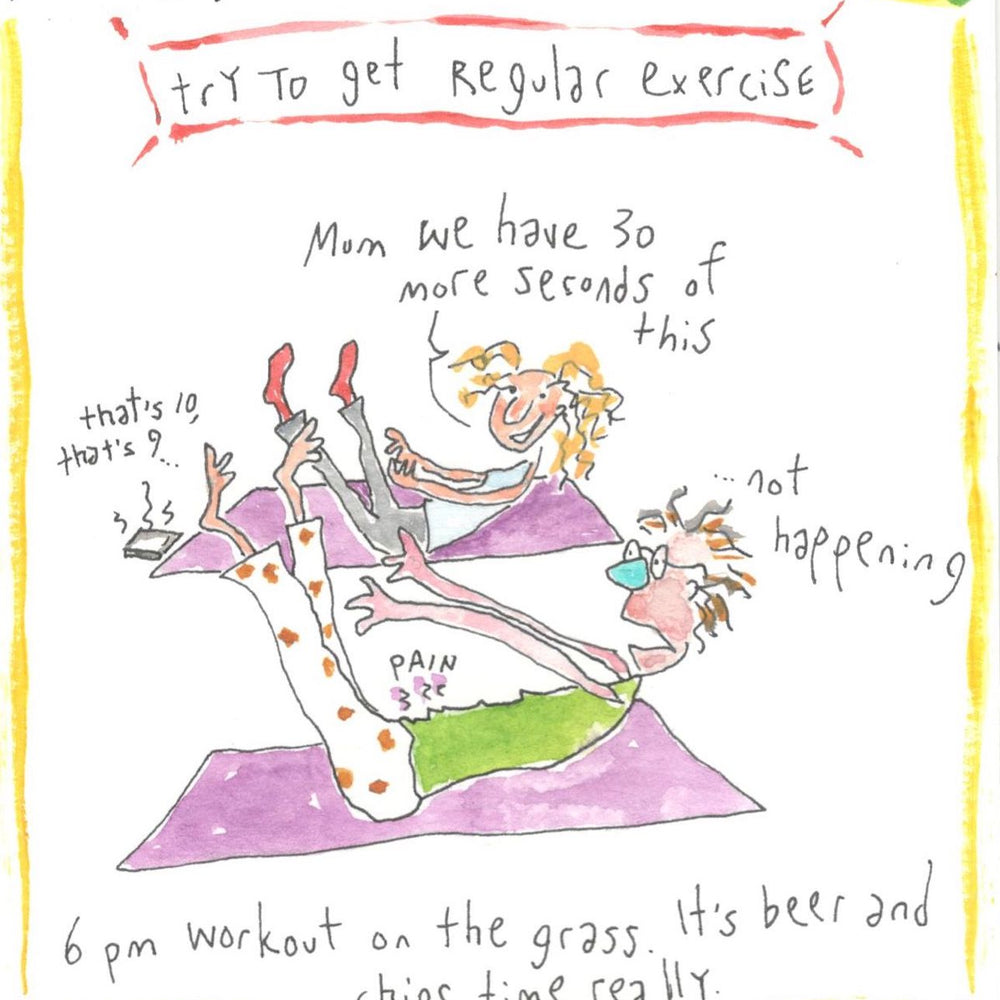 try To get Regular exerciSE
Mum we have 30
more seconds of
this
that's 10,
that's 9...
...not
happening
PAIN
6 pm workout on the grass. It's beer and
chips time really.